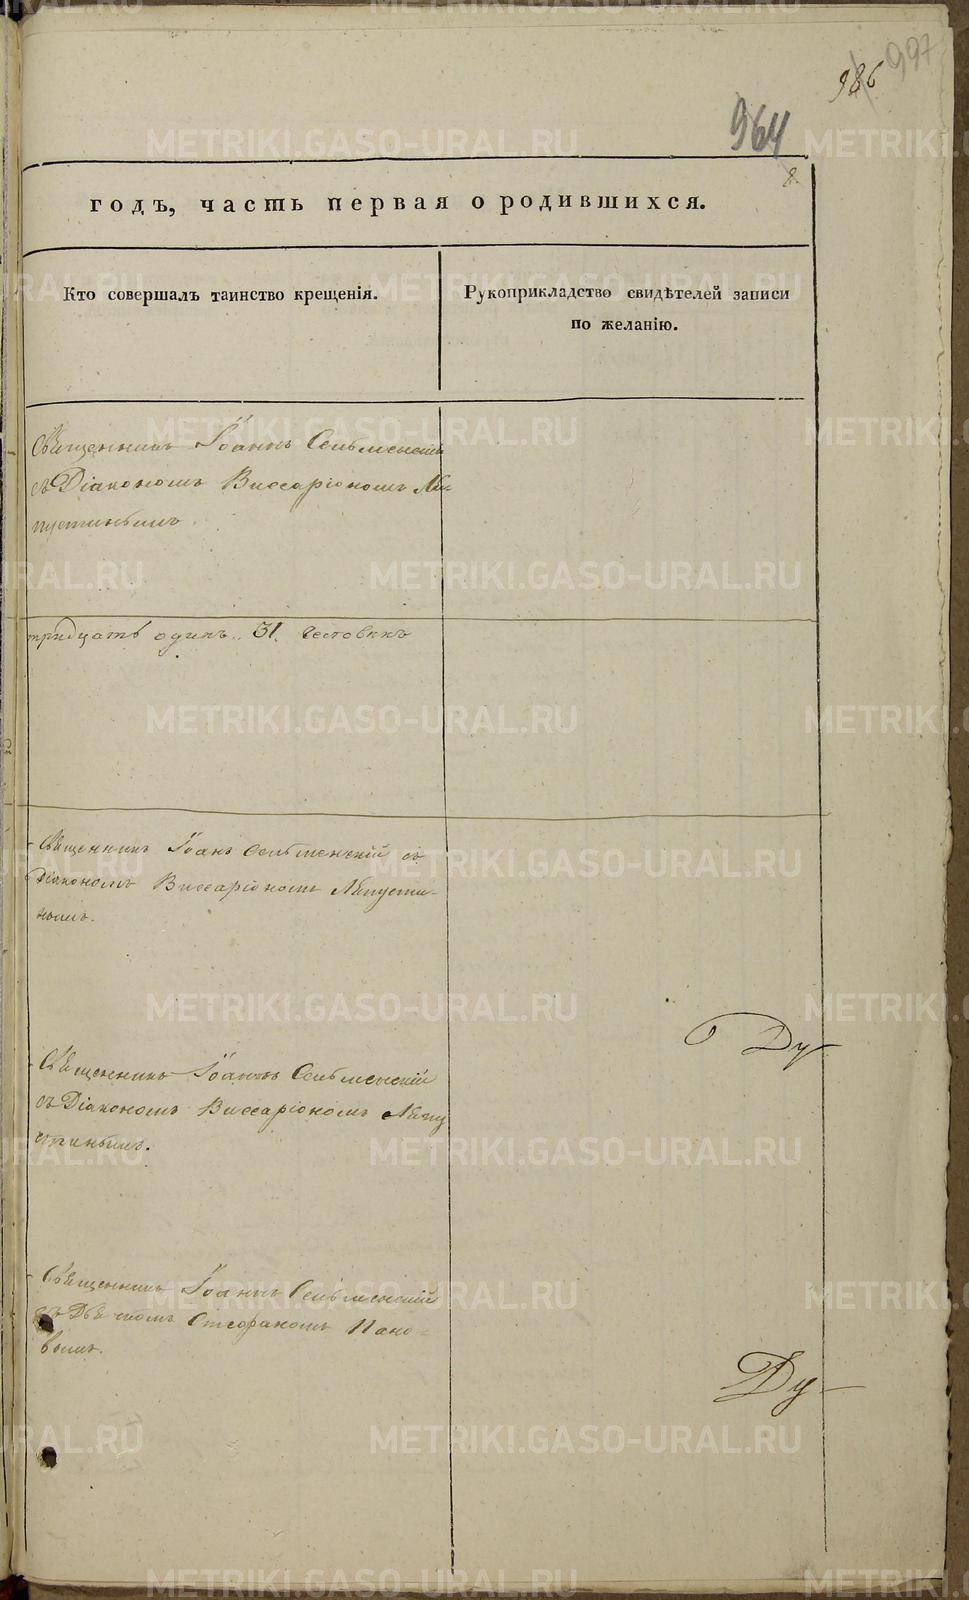 997
986
964
8.
годъ, часть первая о родившихся.
Кто совершалъ таинство крещенія.
Рукоприкладство свидѣтелей записи
по желанію.
Священникъ Іоаннъ Сельменскій
съ Діакономъ Виссаріономъ Ляпустинымъ
тридцать одинъ. 31.
Священникъ Іоанъ Сельменскій съ
Діакономъ Виссаріономъ Ляпусти-
нымъ.
Священникъ Іоаннъ Сельменскій
съ Діакономъ Виссаріономъ Ляпу
стинымъ.
Священникъ Іоаннъ Сельменскій
съ Дьячкомъ Стефаномъ Пано-
вымъ.
Ду-
Ду-
METRIKI.GASO-URAL.RU